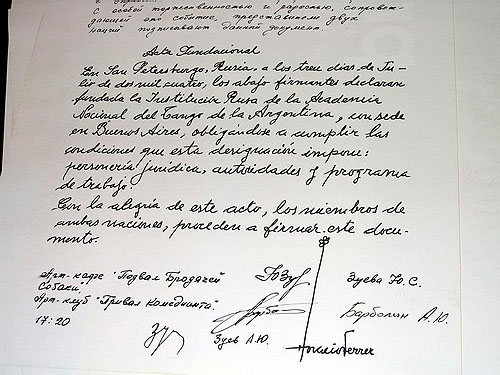 с особой торжественностью и радостью, сопровож-
дающей это событие, представители двух
наций подписывают данный документ.
Acta Fundacional
En San Petersburgo, Rusia, a los tres días de Ju-
lio de dos mil cuatro, los abajo firmantes declaran
fundada la Institución Rusa de la Academia
Nacional del Tango de la Argentina, con sede
en Buenos Aires, obligándose a cumplir las
condiciones que esta designación impone:
personería jurídica, autoridades y programa
de trabajo.
Con la alegría de este acto, los miembros de
ambas naciones, proceden a firmar este docu-
mento.
Арт-кафе "Подвал Бродячей
Собаки"
Арт-клуб "Привал Комедианта".
17:20
ЮЗу
Зуева Ю.С.
Барболин А.Ю.
Зуев А.Ю.
Horacio Ferrer